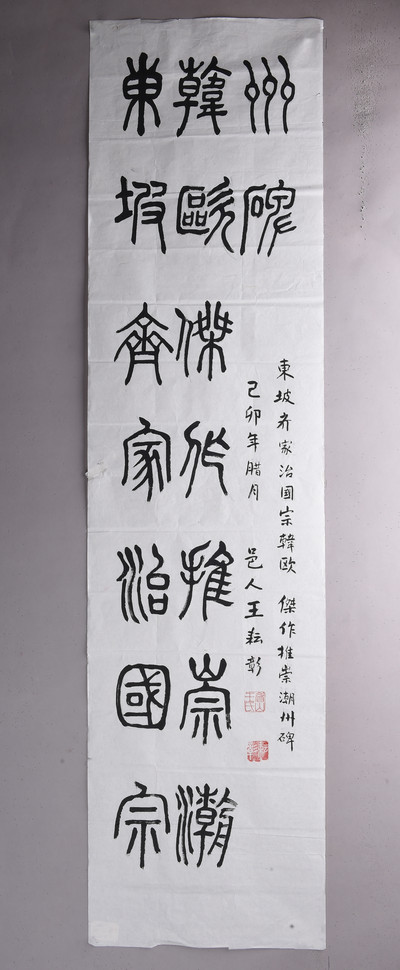 東坡齊家治國宗
韓歐傑作推崇潮
州碑
東坡齐家治國宗韓欧 傑作推崇潮州碑
己卯年腊月 邑人王耘彰